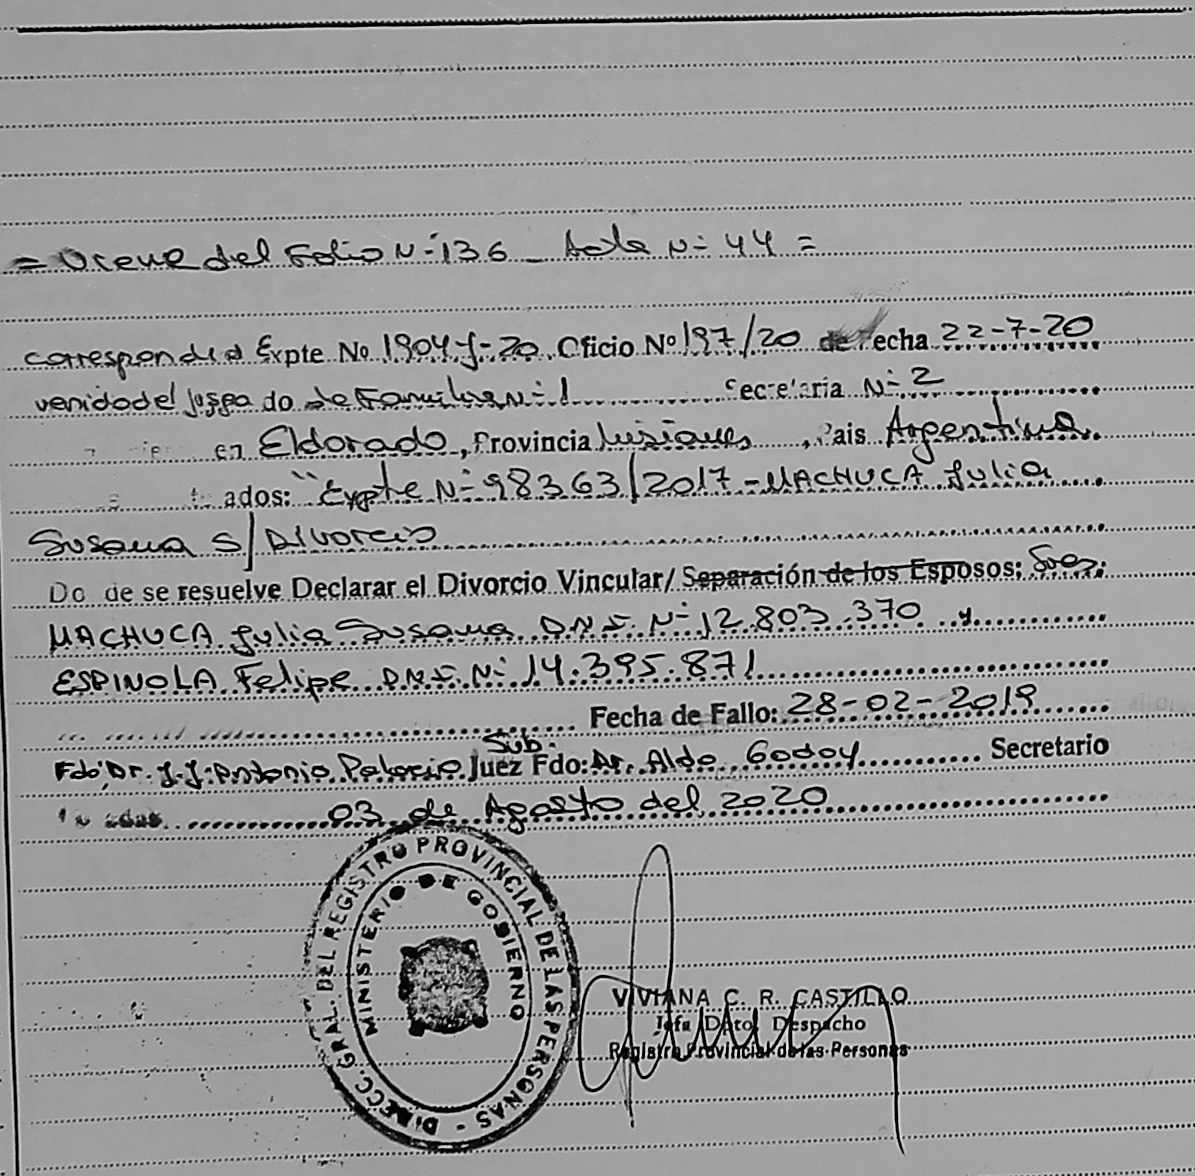 = Viene del Folio N-º 136 - Acta N-º 44 =
corresponde a Expte No 1904 J-20 Oficio Nº 197/20 de fecha 22-7-20
venido del juzgado de Familia N-º 1 Secretaria N-º 2
en Eldorado, Provincia Misiones, Pais Argentina
ados: "Expte N-º 98363/2017 - MACHUCA Julia
Susana S/ Divorcio
Do de se resuelve Declarar el Divorcio Vincular/ Separación de los Esposos: Sres:
MACHUCA Julia Susana D.N.I. N-º 12.803.370 y
ESPINOLA Felipe D.N.I. N-º 14.395.871
Fecha de Fallo: 28-02-2019
Sub.
Fdo; Dr. J.J. Antonio Palacio Juez Fdo: Dr. Aldo Godoy Secretario
03 de Agosto del 2020
DIRECC. GRAL. DEL REGISTRO PROVINCIAL DE LAS PERSONAS -
MINISTERIO DE GOBIERNO
VIVIANA C. R. CASTILLO
Jefa Dpto. Despacho
Registro Provincial de las Personas